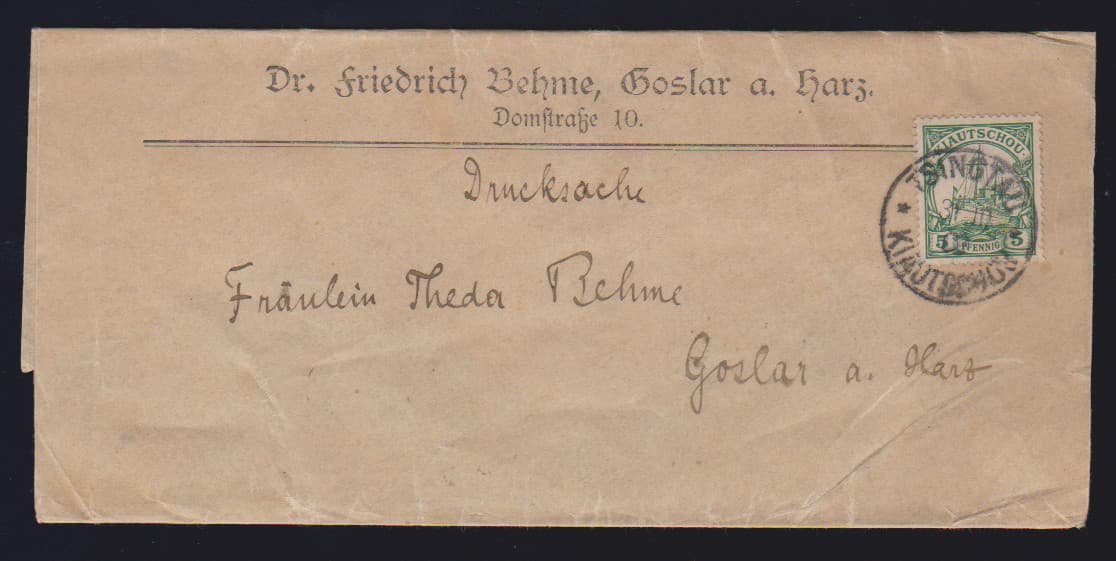 Dr. Friedrich Behme, Goslar a. Harz.
Domstraße 10.
KIAUTSCHOU
5 PFENNIG 5
TSINGTAU
KIAUTSCHOU
Drucksache
Fräulein Theda Behme
Goslar a. Harz